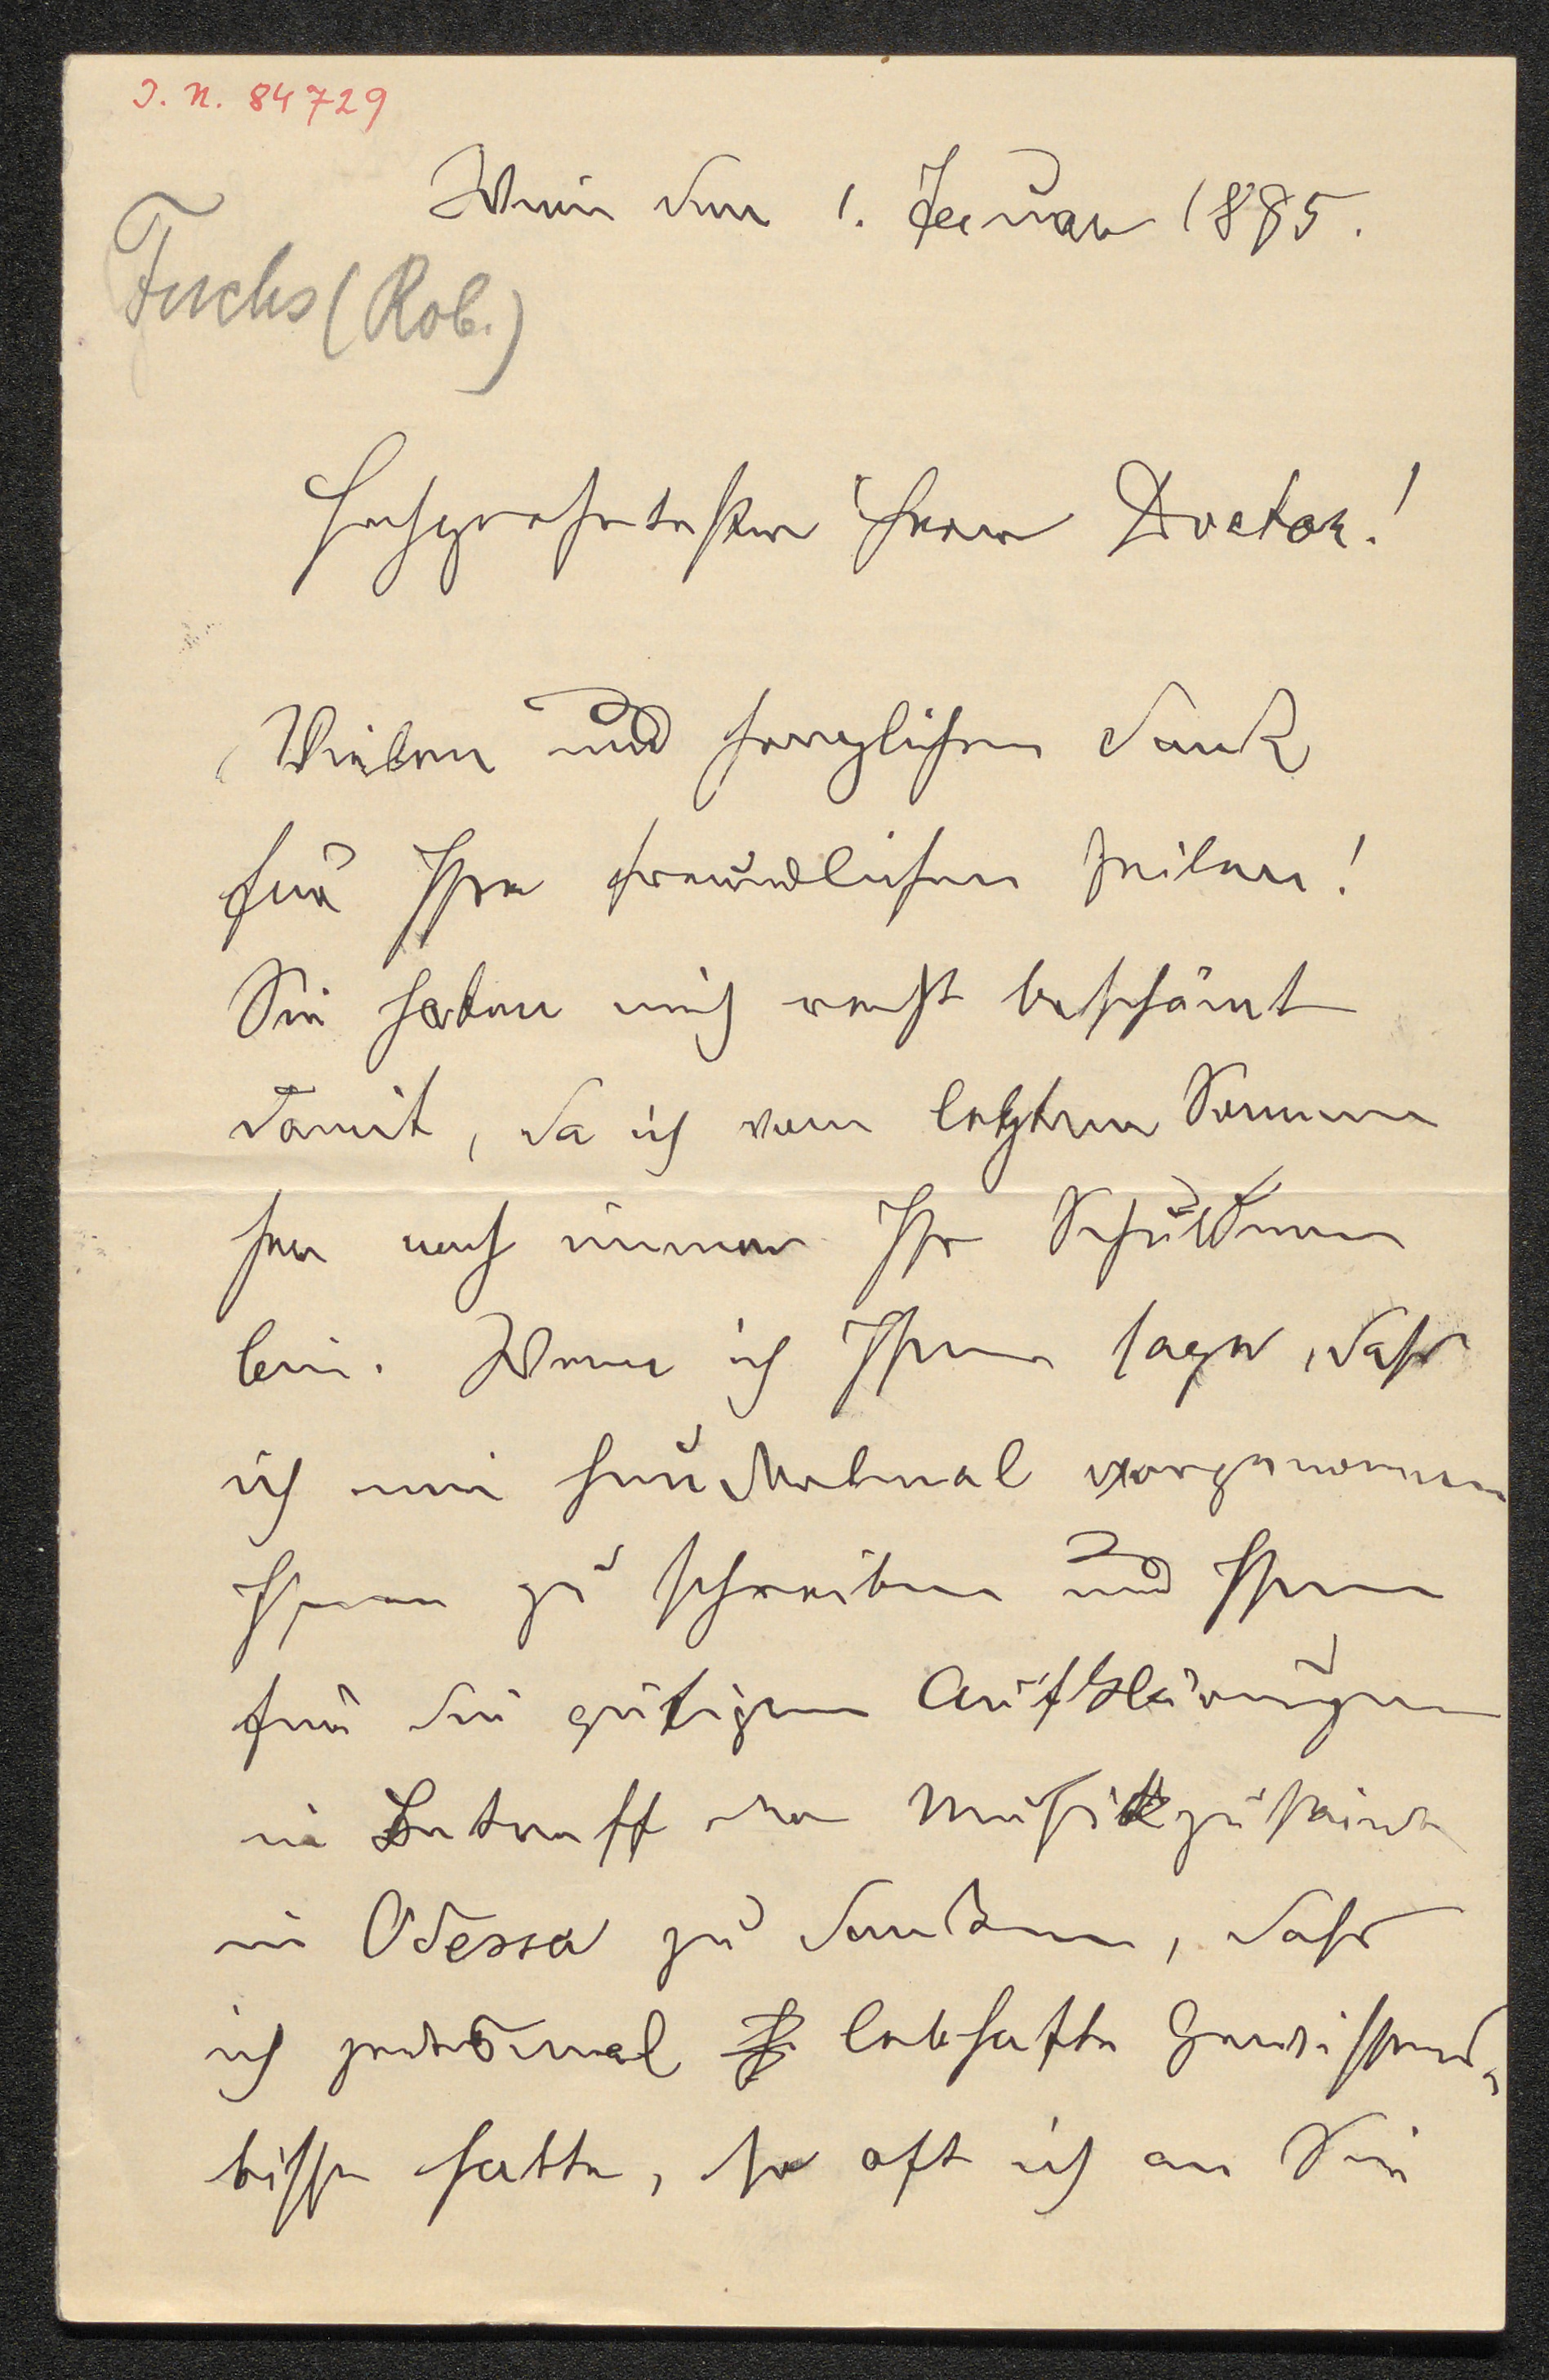 I. N. 84729
Wien den 1. Januar 1885.
Fuchs (Rob.)
Hochgeehrtester Herr Doctor!
Vielen und herzlichen Dank
für Ihre freundlichen Zeilen!
Sie haben mich recht beschämt
damit, da ich vom letzten Sommer
her noch immer Ihr Schuldner
bin. Wenn ich Ihnen sage, dass
ich mir hundertmal vorgenommen
Ihnen zu schreiben und Ihnen
für die gütigen Aufklärungen
in Betreff der Musikzustände
in Odessa zu danken, dass
ich jedesmal lebhafte Gewissens-
bisse hatte, so oft ich an Sie